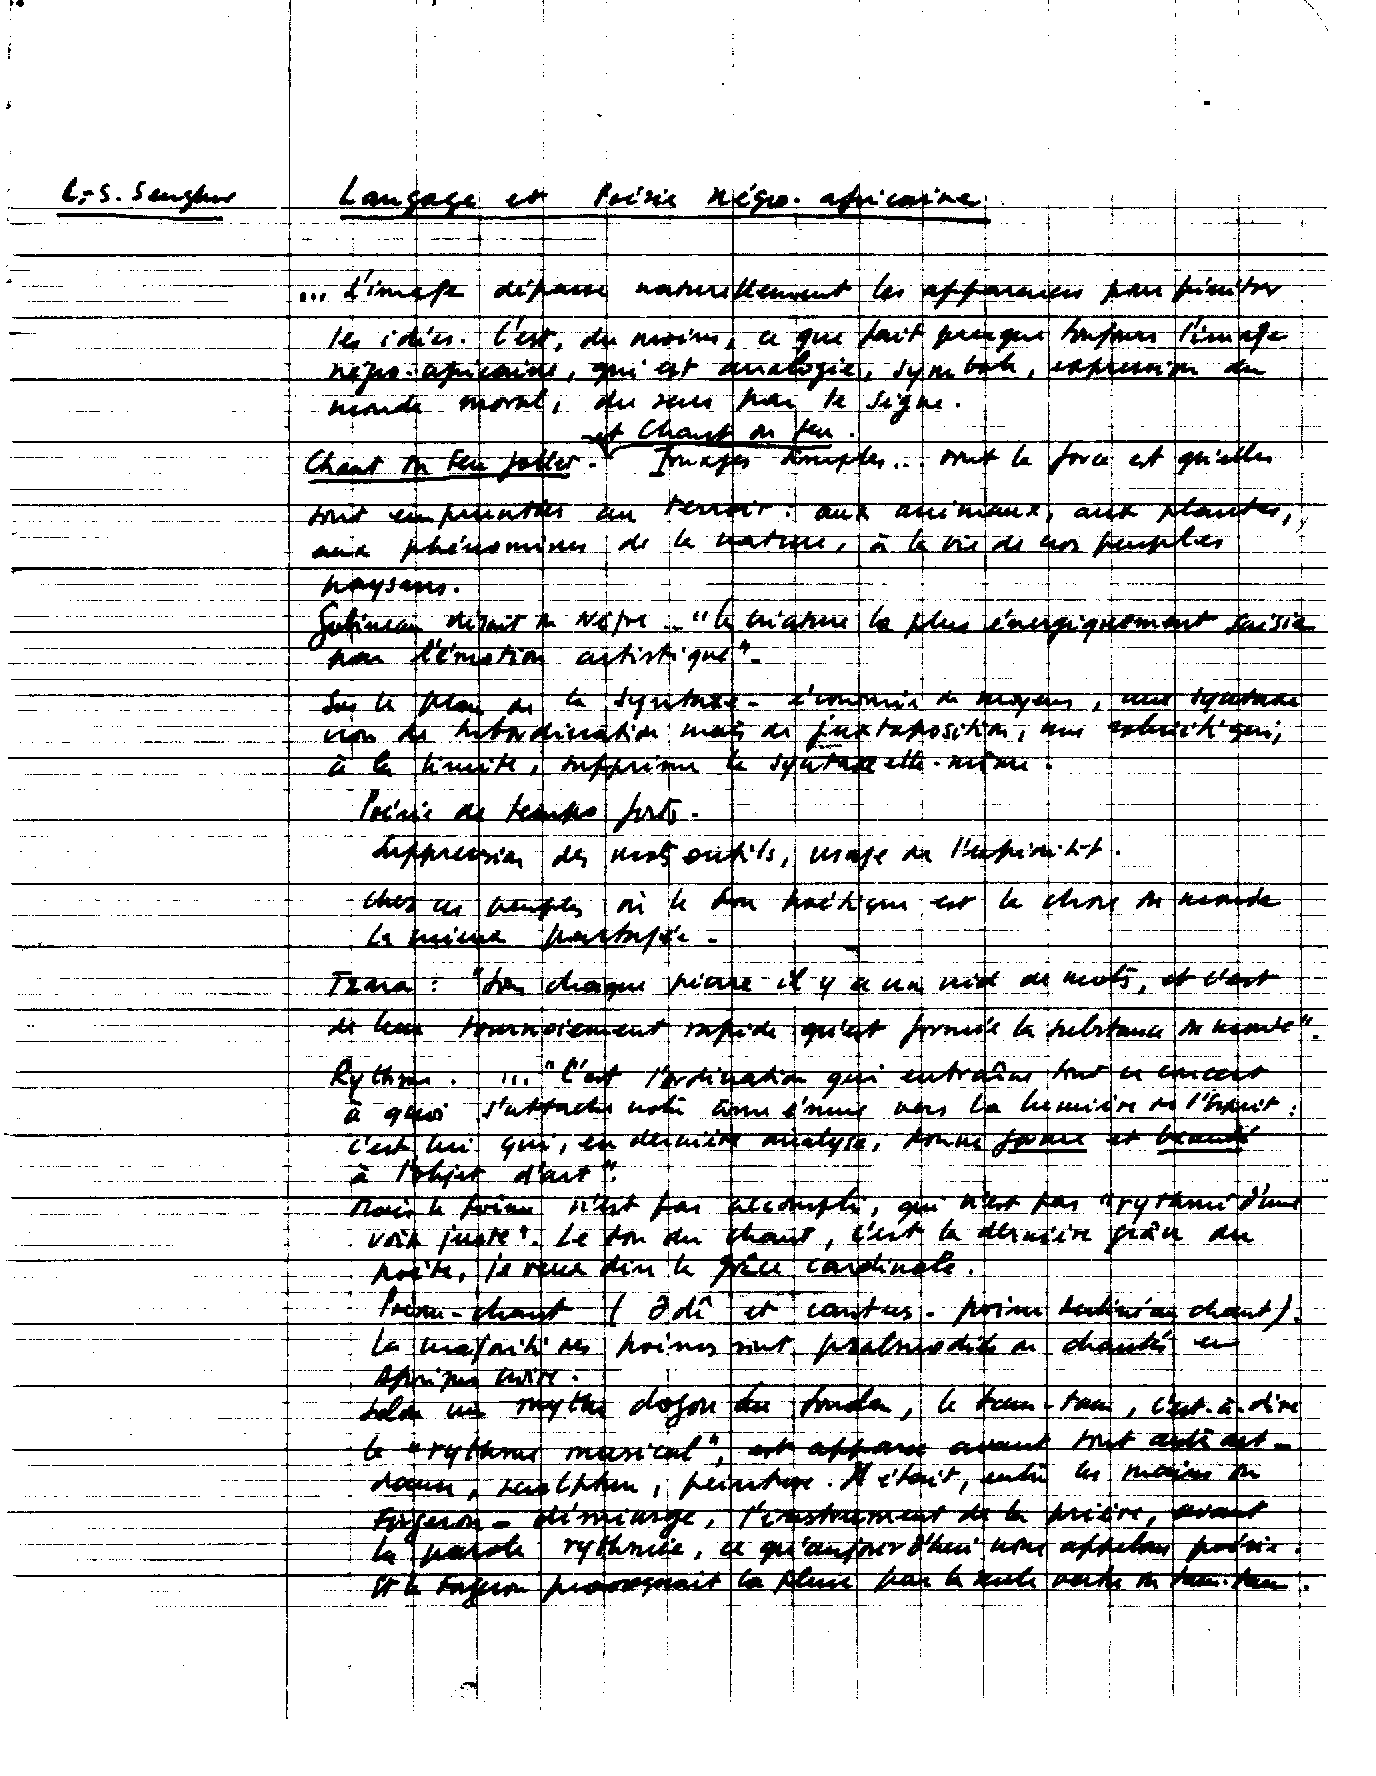 L.-S. Senghor
Langage et Poésie négro-africaine
... L'image dépasse naturellement les apparences pour pénétrer
les idées. C'est, du moins, ce que fait presque toujours l'image
négro-africaine, qui est analogie, symbole, expression du
monde moral, du sens par le signe.
et Chant du feu.
Chant du feu follet. Images simples... dont la force est qu'elles
sont empruntées au terroir: aux animaux, aux plantes,
aux phénomènes de la nature, à la vie de nos peuples
paysans.
Gobineau disait du Nègre - "la créature la plus énergiquement saisie
par l'émotion artistique".
Sur le plan de la syntaxe - économie de moyens, une syntaxe
non de subordination mais de juxtaposition, une qui,
à la limite, supprime la syntaxe elle-même.
Poésie de temps forts.
Suppression des mots outils, usage de l'infinitif.
Chez ces peuples où le don poétique est la chose du monde
la mieux partagée -
Tzara: "Sous chaque pierre il y a un nid de mots, et c'est
de leur tournoiement rapide qu'est formée la substance du monde".
Rythme. ... "C'est l'ordination qui entraîne tout ce concert
à quoi s'attache notre âme émue vers la lumière de l'Esprit:
c'est lui qui, en dernière analyse, donne forme et beauté
à l'objet d'art".
Mais le poème n'est pas accompli, qui n'est pas "rythmé d'une
voix juste". Le don du chant, c'est la dernière grâce du
poète, je veux dire la grâce cardinale.
Poème-chant ( et cantus - poème destiné au chant).
La majorité des poèmes sont psalmodiés ou chantés en
Afrique noire.
Selon un mythe dogon du Soudan, le tam-tam, c'est-à-dire
le "rythme musical", est apparu avant tout autre art -
danse, sculpture, peinture. Il était, entre les mains du
Forgeron-démiurge, l'instrument de la prière, avant
la parole rythmée, ce qu'aujourd'hui nous appelons poésie.
Et le Forgeron provoquait la pluie par la seule vertu du tam-tam.